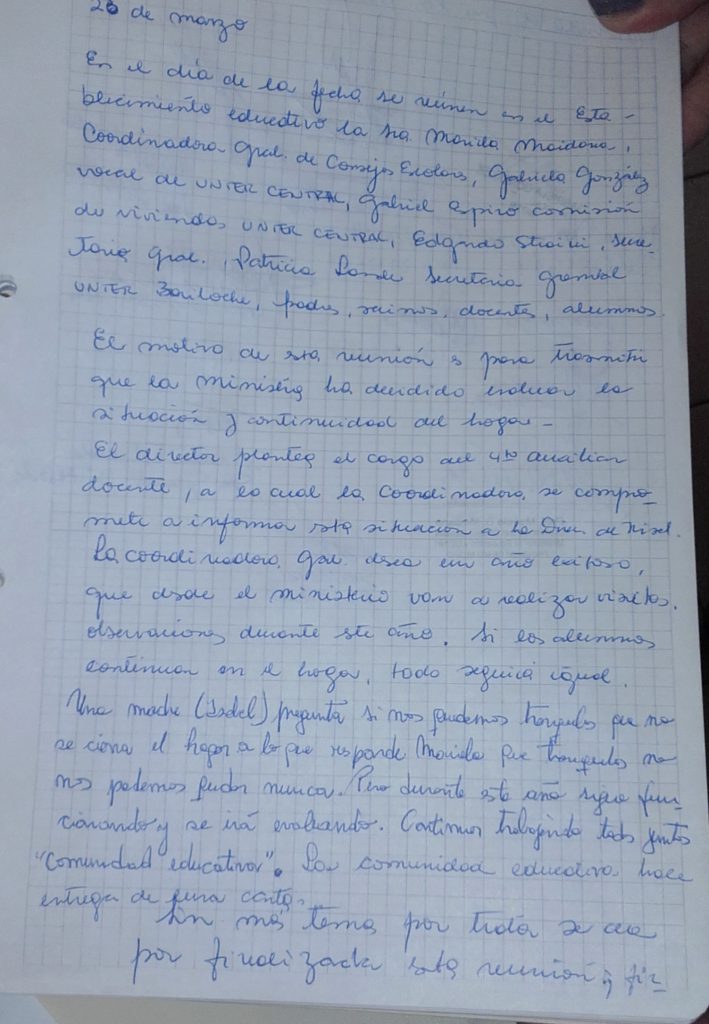 26 de marzo
En el día de la fecha se reúnen en el Esta-
blecimiento educativo la sra. Mariela Maidana,
Coordinadora Gral. de Consejos Escolares, Gabriela González
vocal de UNTER CENTRAL, Gabriel comisión
de viviendas UNTER CENTRAL, Edgardo secre-
tario Gral., Patricia secretaria gremial
UNTER Bariloche, padres, vecinos, docentes, alumnos.
El motivo de esta reunión es para trasmitir
que la ministra ha decidido evaluar la
situación y continuidad del hogar-
El director plantea el cargo del 4to auxiliar
docente, a lo cual la Coordinadora se compro-
mete a informar esta situación a la Direc. de Nivel.
La coordinadora Gral. desea un año exitoso,
que desde el ministerio van a realizar visitas,
observaciones durante este año. Si los alumnos
continuan en el hogar, todo seguirá igual.
Una madre (Isabel) pregunta si nos quedemos tranquilos que no
se cierra el hogar a lo que responde Mariela que tranquilos no
nos podemos quedar nunca. Pero durante este año sigue fun-
cionando y se irá evaluando. Continuar trabajando todos juntos
"Comunidad educativa". La comunidad educativa hace
entrega de una carta.
Sin más tema por tratar se da
por finalizada esta reunión, fir-